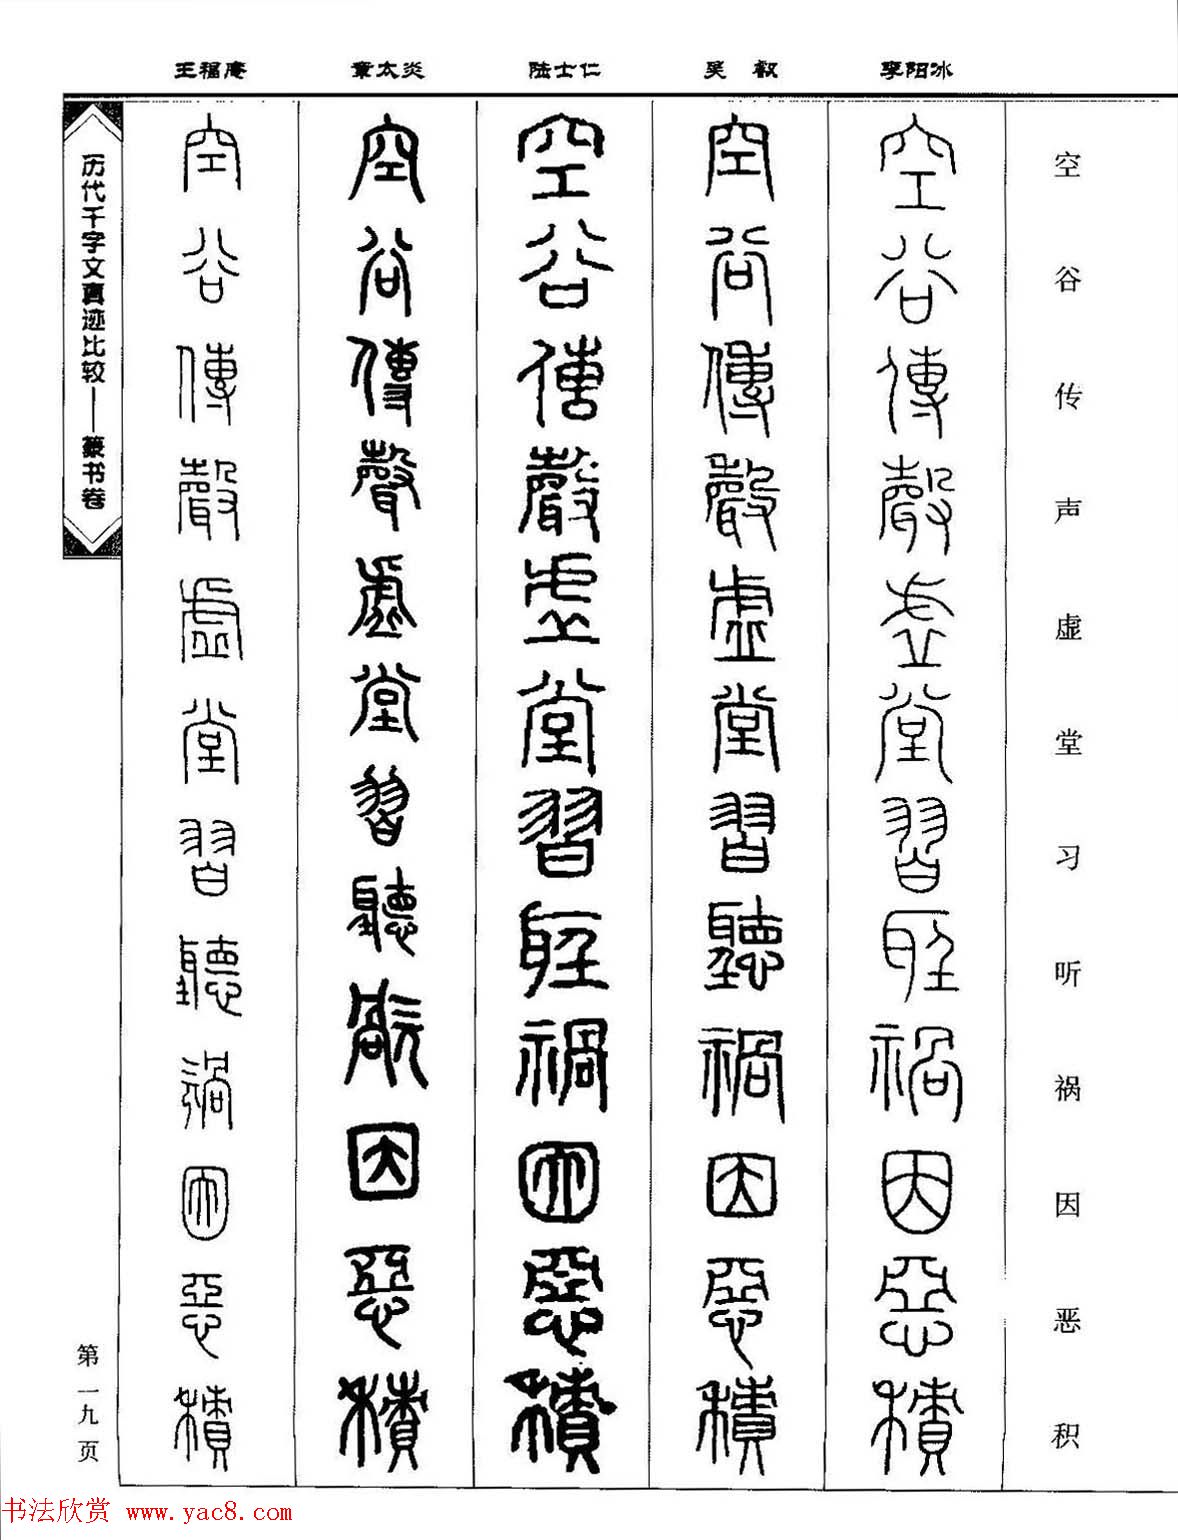 王福庵 章太炎 陆士仁 吴 叡 李阳冰
空谷传声虚堂习听祸因恶积
空谷傳聲虛堂習聽禍因惡積
空谷傳聲虛堂習聽禍因惡積
空谷傳聲虛堂習聽禍因惡積
空谷傳聲虛堂習聽禍因惡積
空谷傳聲虛堂習聽禍因惡積
历代千字文真迹比较——篆书卷
第一九页
书法欣赏 www.yac8.com